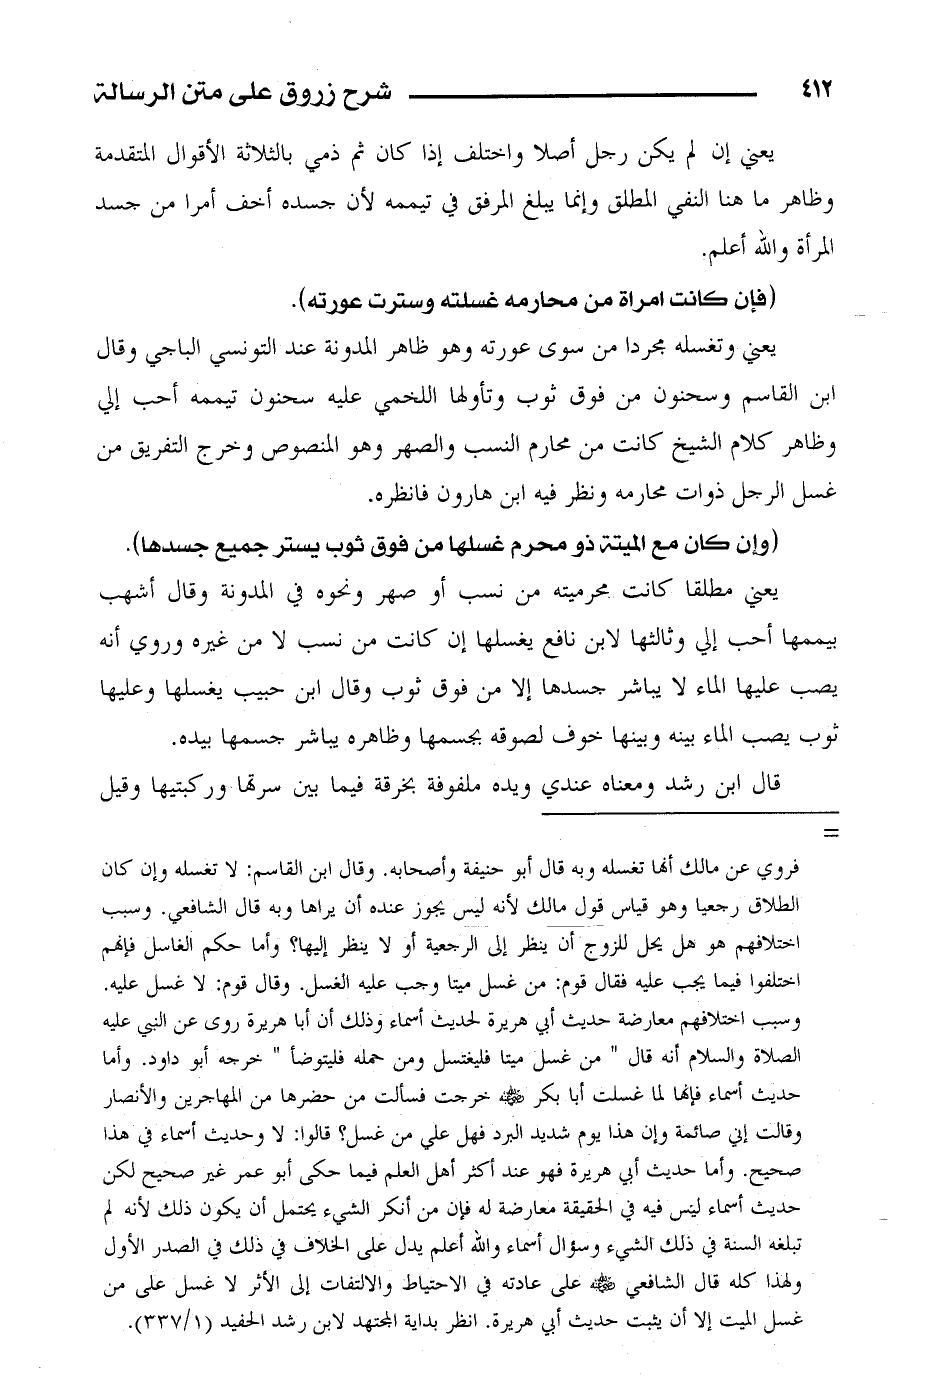 ٤١٢ شرح زروق على متن الرسالة
يعني إن لم يكن رجل أصلا واختلف إذا كان ثم ذمي بالثلاثة الأقوال المتقدمة
وظاهر ما هنا النفي المطلق وإنما يبلغ المرفق في تيممه لأن جسده أخف أمرا من جسد
المرأة والله أعلم.
(فإن كانت امراة من محارمه غسلته وسترت عورته).
يعني وتغسله مجردا من سوى عورته وهو ظاهر المدونة عند التونسي الباجي وقال
ابن القاسم وسحنون من فوق ثوب وتأولها اللخمي عليه سحنون تيممه أحب إلي
وظاهر كلام الشيخ كانت من محارم النسب والصهر وهو المنصوص وخرج التفريق من
غسل الرجل ذوات محارمه ونظر فيه ابن هارون فانظره.
(وإن كان مع الميتة ذو محرم غسلها من فوق ثوب يستر جميع جسدها).
يعني مطلقا كانت محرميته من نسب أو صهر ونحوه في المدونة وقال أشهب
ييممها أحب إلي وثالثها لابن نافع يغسلها إن كانت من نسب لا من غيره وروي أنه
يصب عليها الماء لا يباشر جسدها إلا من فوق ثوب وقال ابن حبيب يغسلها وعليها
ثوب يصب الماء بينه وبينها خوف لصوقه بجسمها وظاهره يباشر جسمها بيده.
قال ابن رشد ومعناه عندي ويده ملفوفة بخرقة فيما بين سرتها وركبتيها وقيل
=
فروي عن مالك أنها تغسله وبه قال أبو حنيفة وأصحابه. وقال ابن القاسم: لا تغسله وإن كان
الطلاق رجعيا وهو قياس قول مالك لأنه ليس يجوز عنده أن يراها وبه قال الشافعي. وسبب
اختلافهم هو هل يحل للزوج أن ينظر إلى الرجعية أو لا ينظر إليها؟ وأما حكم الغاسل فإنهم
اختلفوا فيما يجب عليه فقال قوم: من غسل ميتا وجب عليه الغسل. وقال قوم: لا غسل عليه.
وسبب اختلافهم معارضة حديث أبي هريرة لحديث أسماء وذلك أن أبا هريرة روى عن النبي عليه
الصلاة والسلام أنه قال " من غسل ميتا فليغتسل ومن حمله فليتوضأ " خرجه أبو داود. وأما
حديث أسماء فإنها لما غسلت أبا بكر ﷺ خرجت فسألت من حضرها من المهاجرين والأنصار
وقالت إني صائمة وإن هذا يوم شديد البرد فهل علي من غسل؟ قالوا: لا وحديث أسماء في هذا
صحيح. وأما حديث أبي هريرة فهو عند أكثر أهل العلم فيما حكى أبو عمر غير صحيح لكن
حديث أسماء ليس فيه في الحقيقة معارضة له فإن من أنكر الشيء يحتمل أن يكون ذلك لأنه لم
تبلغه السنة في ذلك الشيء وسؤال أسماء والله أعلم يدل على الخلاف في ذلك في الصدر الأول
ولهذا كله قال الشافعي ﷺ على عادته في الاحتياط والالتفات إلى الأثر لا غسل على من
غسل الميت إلا أن يثبت حديث أبي هريرة. انظر بداية المجتهد لابن رشد الحفيد (١/٣٣٧).